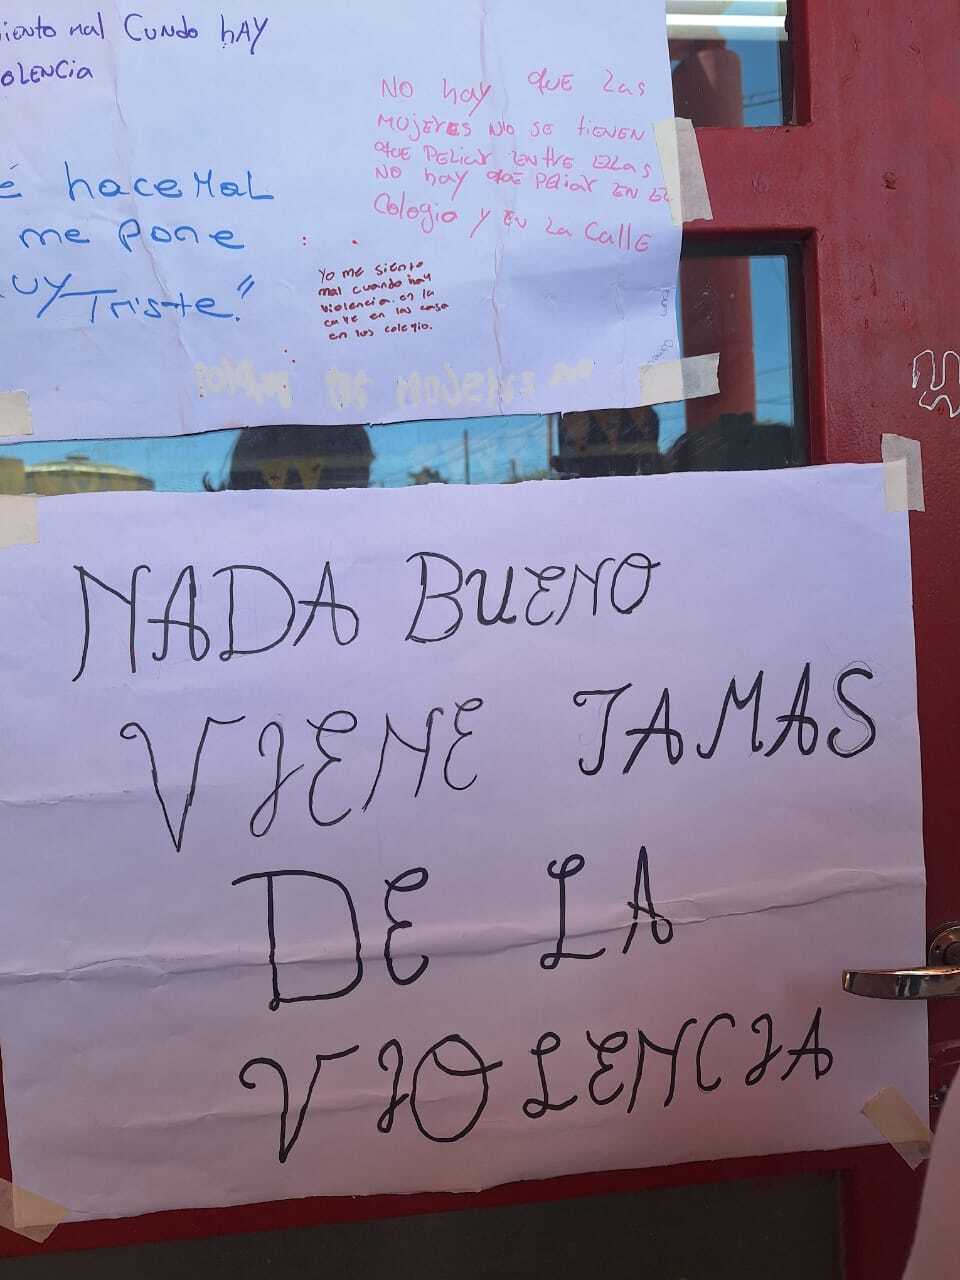 siento mal Cundo hay
olencia
é hace mal
me pone
uy Triste."
No hay que las
mujeres no se tienen
que peliar entre ellas
no hay que peliar en el
Cologio y en la Calle
Yo me siento
mal cuando hay
violencia. en la
calle en las casa
en los colegio.
NADA BUENO
VIENE JAMAS
DE LA
VIOLENCIA